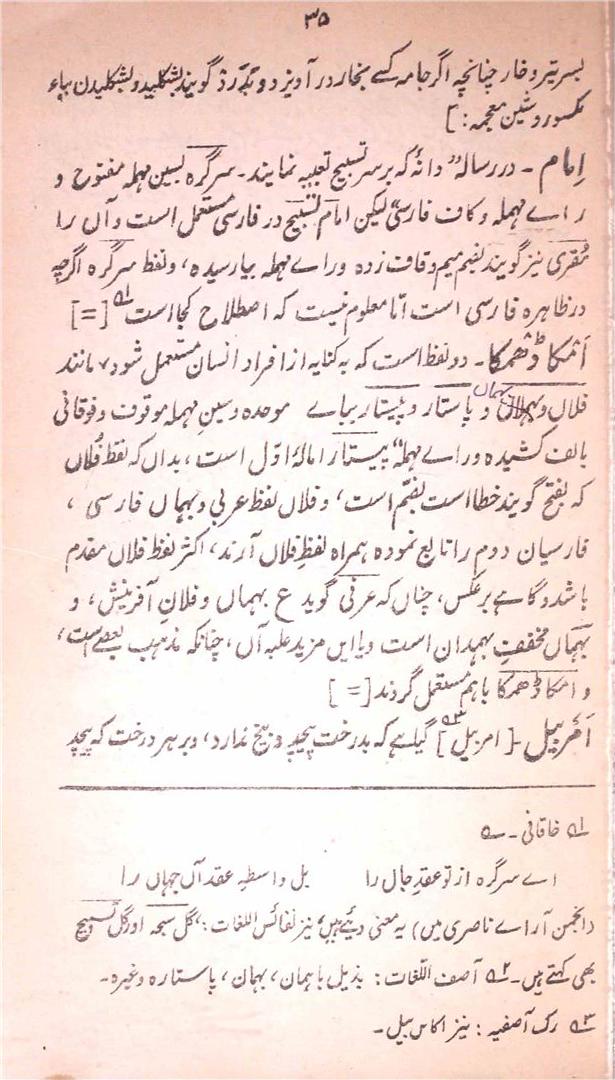 ۳۵
بسر تیر و خار چنانچہ اگر جامہ کسے بخار در آویزد و بدرد گویند بشکلید و بشکلیدن بباء
مکسور و شین معجمہ : ]
اِمام - در رسالہ "دانۂ کہ بر سر تسبیح تعبیہ نمایند - سرگرہ بسین مہملہ مفتوح و
راے مہملہ و کاف فارسی" لیکن امام تسبیح در فارسی مستعمل است و آں را
مُقری نیز گویند بضم میم و قاف زدہ و راے مہملہ بیا رسیدہ، و لفظ سرگرہ اگرچہ
در ظاہرہ فارسی است امّا معلوم نیست کہ اصطلاح کجا است ۱؎ [ = ]
اَمْکا ڈھْمکا - دو لفظ است کہ بہ کنایہ از افراد انسان مستعمل شود، مانند
فلاں و بہماں و باستار و بیستار بباے موحدہ و سین مہملہ موقوف و فوقانی
بالف کشیدہ و راے مہملہ" بیستار امالۂ اوّل است، بداں کہ لفظ فُلاں
کہ بفتح گویند خطا است بضم است، و فلاں لفظ عربی و بہماں فارسی،
فارسیان دوم را تابع نمودہ ہمراہ لفظِ فلاں آرند، اکثر لفظ فلاں مقدم
باشد و گاہے برعکس، چناں کہ عرفی گوید ع بہمان و فلانِ آفرینش، و
بَہماں مخففِ بہمدان است و یا ایں مزید علیہ آں، چنانکہ مذہب بعضے است،
و امکا ڈھمکا باہم مستعمل گردند [ = ]
اَمَربیل - [ امربیل ۳؎ ] گیاہے کہ بدرخت پیچد و بیخ ندارد، و بر ہر درخت کہ پیچد
۱؎ خاقانی - ؎
اے سرگرہ از تو عقدِ جاں را     بل واسطہ عقد آں جہاں را
(انجمن آراے ناصری میں) یہ معنی دیئے ہیں، نیز نفائس اللغات : "گل سبحہ اور گل تسبیح
بھی کہتے ہیں - ۲؎ آصف اللغات : بذیل باہمان، بہمان، باستارہ وغیرہ -
۳؎ رک آصفیہ : نیز اکاس بیل -